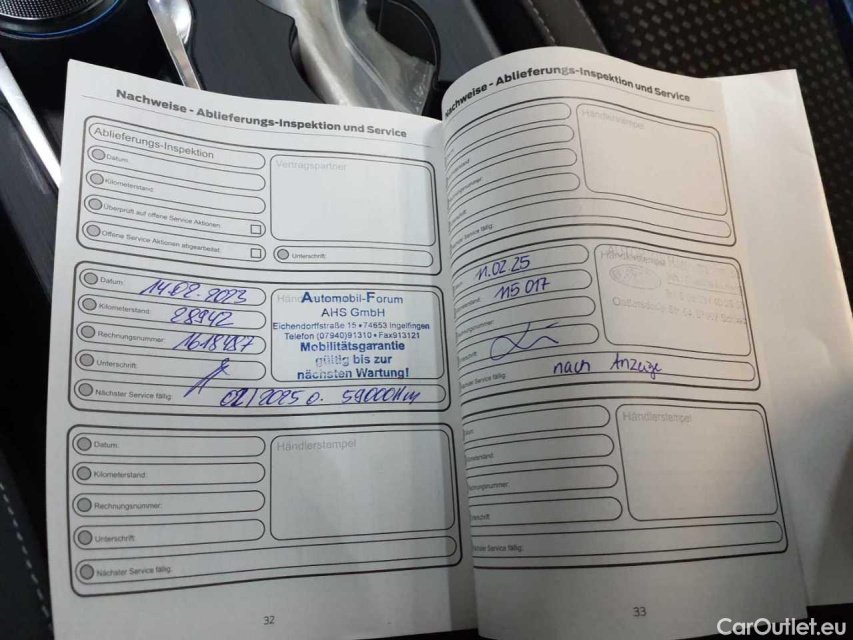 Nachweise - Ablieferungs-Inspektion und Service
Ablieferungs-Inspektion
Datum:
Kilometerstand:
Überprüft auf offene Service Aktionen.
Offene Service Aktionen abgearbeitet.
Vertragspartner
Unterschrift:
Datum: 14.02.2023
Kilometerstand: 28942
Rechnungsnummer: 1618487
Unterschrift:
Nächster Service fällig: 02/2025 o. 59000Km
Automobil-Forum
AHS GmbH
Eichendorffstraße 15 • 74653 Ingelfingen
Telefon (07940)91310 • Fax913121
Mobilitätsgarantie
gültig bis zur
nächsten Wartung!
Datum:
Kilometerstand:
Rechnungsnummer:
Unterschrift:
Nächster Service fällig:
Händlerstempel
32
Nachweise - Ablieferungs-Inspektion und Service
Händlerstempel
Service fällig:
11.02.25
115 017
Service fällig: nach Anzeige
Händlerstempel
Händlerstempel
Service fällig:
33
CarOutlet.eu